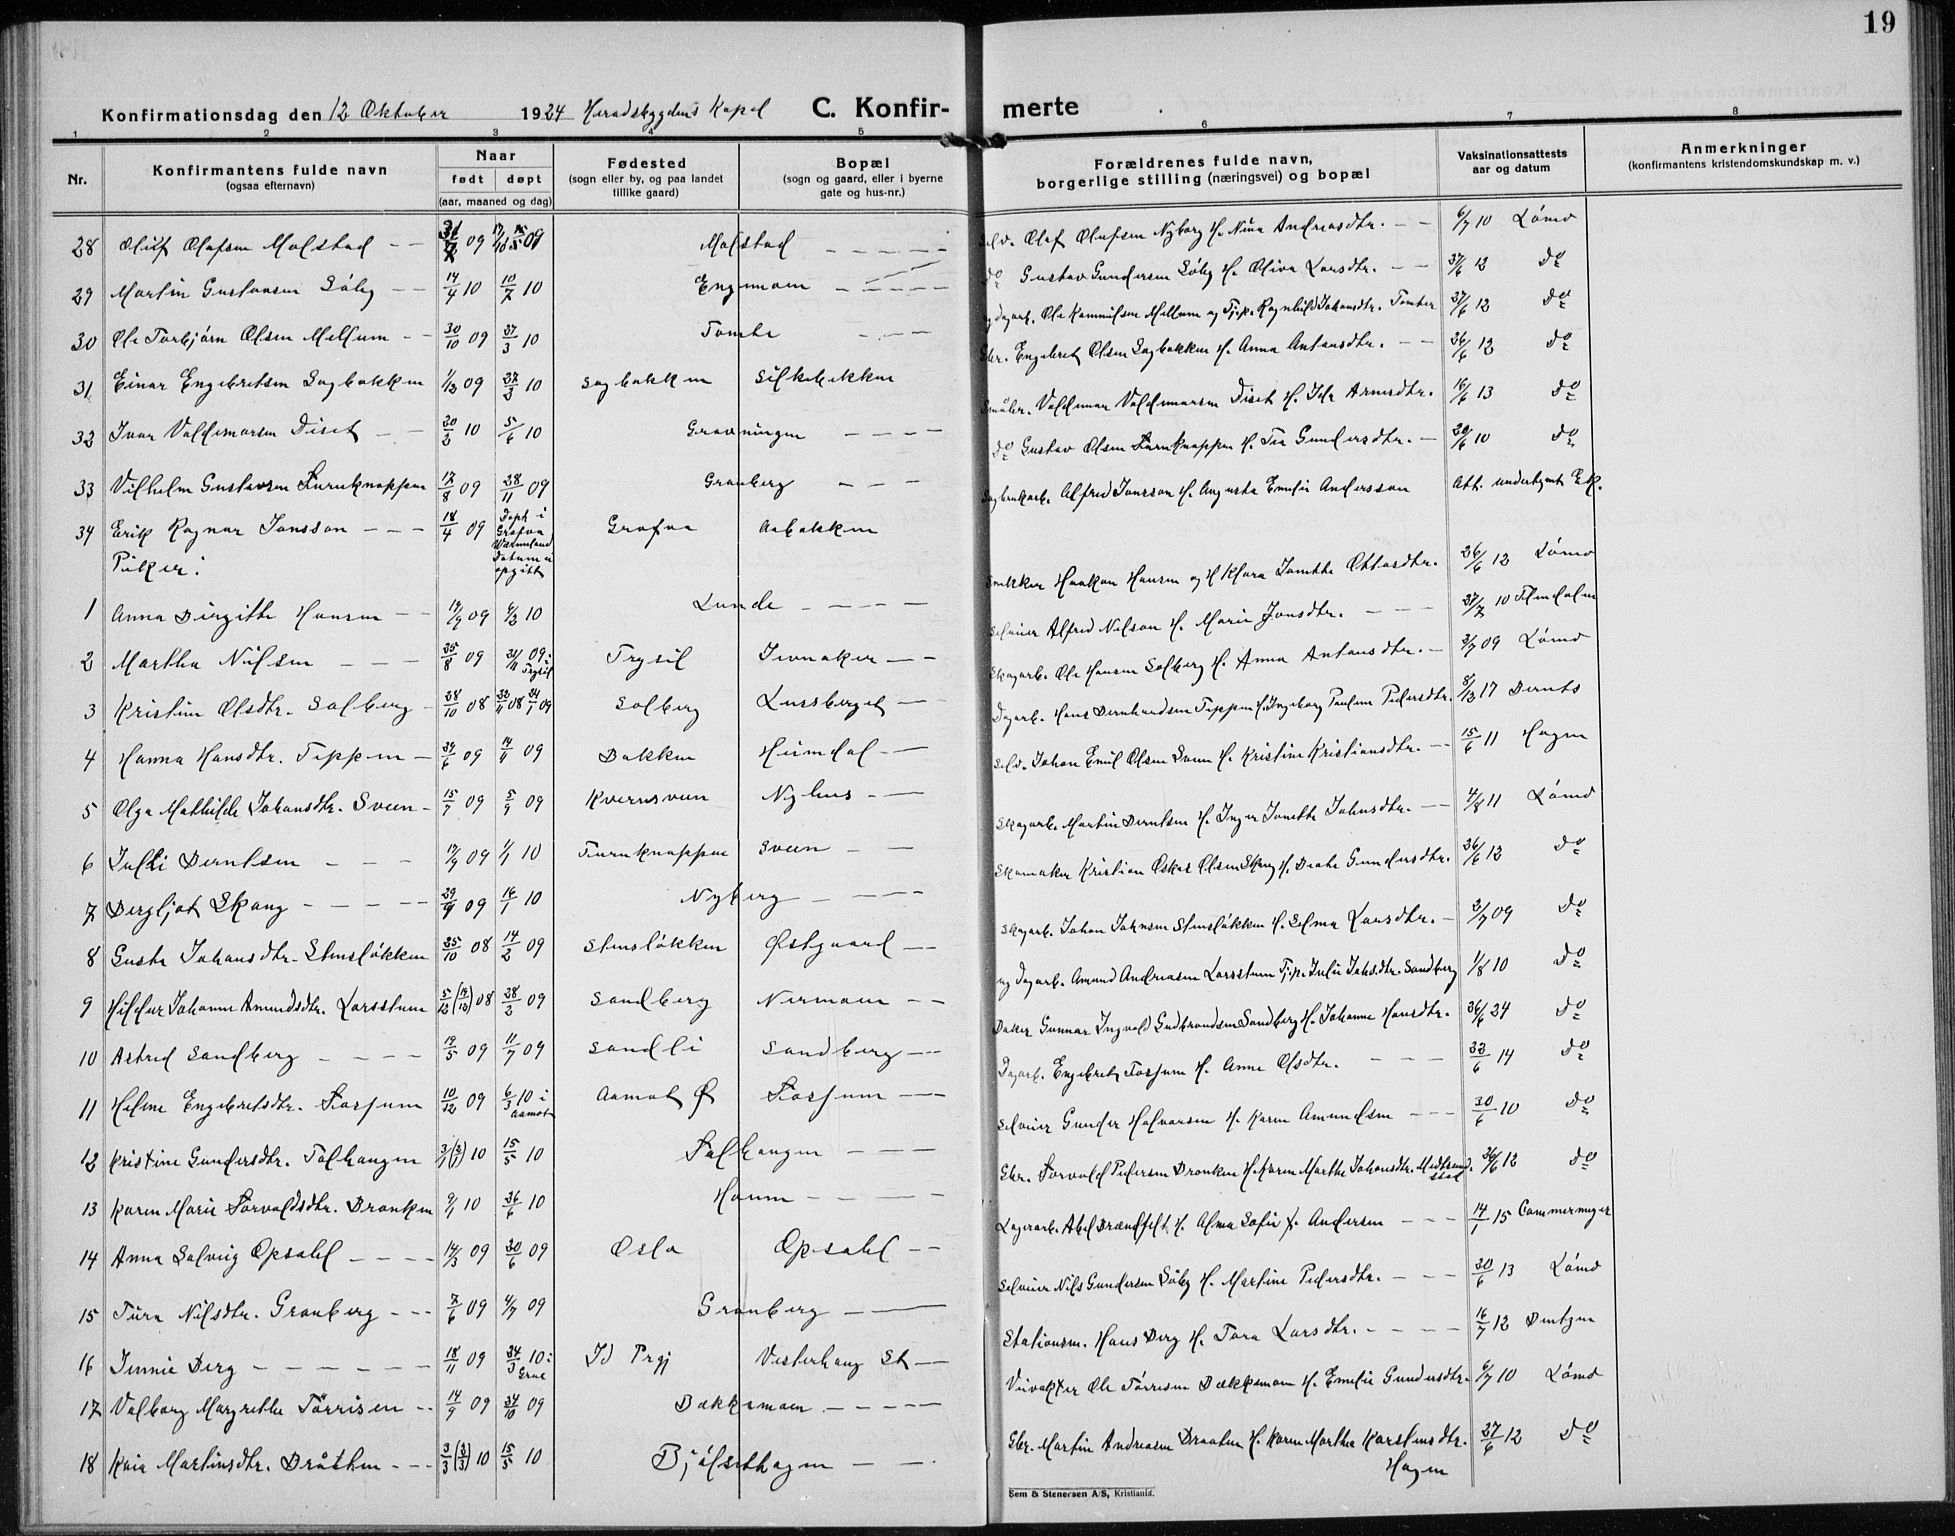 19
Konfirmationsdag den 12 Oktober 1924 Heradsbygdens Kapel C. Konfir- merte
1 2 3 4 5 6 7 8
Nr. Konfirmantens fulde navn (ogsaa efternavn) Naar født døpt (aar, maaned og dag) Fødested (sogn eller by, og paa landet tillike gaard) Bopæl (sogn og gaard, eller i byerne gate og hus-nr.) Forældrenes fulde navn, borgerlige stilling (næringsvei) og bopæl Vaksinationsattests aar og datum Anmerkninger (konfirmantens kristendomskundskap m. v.)
28 Olaf Olafsen Molstad 09 09 Molstad Selv. Olaf Olafsen Nyborg H. Nina Andreasdtr. 6/7 10 Lømo
29 Martin Gustavsen Søby 14/4 10 10/7 10 Engemoen do Gustav Gundersen Søby H. Oliva Larsdtr. 27/6 12 do
30 Ole Torbjørn Olsen Mellum 30/10 09 27/3 10 Tomte Ole Kammilsen Mellum og Pike Ragnhild Johansdtr. Tomter 27/6 12 do
31 Einar Engebretsen Sagbakken 1/12 09 27/3 10 Sagbakken Silkebekken Gbr. Engebret Olsen Sagbakken H. Anna Antonsdtr. 26/6 12 do
32 Ivar Valdemarsen Diset 20/2 10 5/6 10 Gravningen Småbr. Valdemar Valdemarsen Diset H. Ida Arnesdtr. 16/6 13 do
33 Vilhelm Gustavsen Furuknappen 17/8 09 28/11 09 Granberg do Gustav Olsen Furuknappen H. Tea Gundersdtr. 20/6 10 do
34 Erik Ragnar Jonsson 18/4 09 Døpt i Grafva Wermland Datum ei opgitt Grafva Aabakken Sagbruksarb. Alfred Jonsson H. Augusta Emelie Andersson Att. undertegnt Ek.
Piker:
1 Anna Birgitte Hansen 17/9 09 6/2 10 Lunde Snekker Haakon Hansen og H. Klara Jonette Ottosdtr. 26/6 12 Lømo
2 Martha Nilsen 25/8 09 21/11 09 i Trysil Trysil Jevnaker Selveier Alfred Nilsen H. Marie Jonsdtr. 27/7 10 Flendalen
3 Kristine Olsdtr. Solberg 28/10 08 24/1 09 Solberg Lussberget Skogarb. Ole Hansen Solberg H. Anna Antonsdtr. 2/7 09 Lømo
4 Hanna Hansdtr. Teppen 29/6 09 09 Bakken Heimdal Dagarb. Hans Bernhardsen Teppen H. Ingeborg Pauline Pedersdtr. 8/12 17 Berntz
5 Olga Mathilde Johansdtr. Sveen 15/7 09 5/9 09 Kvernsveen Nyhus Selv. Johan Emil Olsen Sveen H. Kristine Kristiansdtr. 15/6 11 Hagen
6 Julli Berntsen 17/9 09 1/1 10 Furuknappen Sveen Skogarb. Martin Berntsen H. Inger Jonette Johnsdtr. 4/8 11 Lømo
7 Bergljot Skaug 29/9 09 16/1 10 Nyberg Skomaker Kristian Oskar Olsen Skaug H. Beate Gundersdtr. 26/6 12 do
8 Gusta Johansdtr. Stensløkken 25/10 08 14/2 09 Stensløkken Østgaard Skogarb. Johan Johnsen Stensløkken H. Selma Larsdtr. 2/7 09 do
9 Hildur Johanne Amundsdtr. Larsstuen 08 28/2 09 Sandberg Nermoen Dagarb. Amund Andreasen Larsstuen Pike Julie Johsdtr. Sandberg 1/8 10 do
10 Astrid Sandberg 19/5 09 11/7 09 Sandli Sandberg Baker Gunnar Ingvald Gudbrandsen Sandberg H. Johanne Hansdtr. 26/6 24 do
11 Helene Engebretsdtr. Fossum 10/12 09 6/3 10 i Aamot Aamot Ø Fossum Dagarb. Engebret Fossum H. Anne Olsdtr. 22/6 14 do
12 Kristine Gundersdtr. Fallhaugen 10 15/5 10 Fallhaugen Selveier Gunder Halvorsen H. Karen Amundsen 30/6 10 do
13 Karen Marie Torvaldsdtr. Bronken 9/1 10 26/6 10 Hauen Gbr. Torvald Pedersen Bronken H. Karen Marthe Johansdtr. 26/6 12 do
14 Anna Solveig Opsahl 17/3 09 20/6 09 Oslo Opsahl Lagerarb. Abel Brændfelt H. Alma Sofie f. Andersen 14/1 15 Cammermeyer
15 Tura Nilsdtr. Granberg 7/6 09 4/7 09 Granberg Selveier Nils Gundersen Søby H. Martine Pedersdtr. 20/6 13 Lømo
16 Jennie Berg 18/11 09 24/3 10 i Grue Id Prgj Vesterhaug St Stationsm. Hans Berg H. Tora Larsdtr. 16/7 12 Bentzen
17 Valborg Margrethe Tørrisen 14/9 09 24/10 09 Bækkemoen Veivokter Ole Tørrisen Bækkemoen H. Emelie Gundersdtr. 6/7 10 Lømo
18 Kaia Martinsdtr. Bråthen 3/3 (3/3) 10 15/5 10 Bjølsethagen Gbr. Martin Andreasen Braaten H. Karen Marthea Karstensdtr. Hagen 27/6 12 do
Sem & Stenersen A/S, Kristiania.